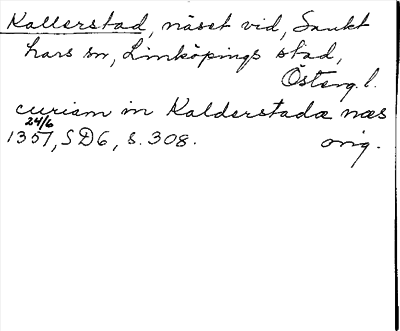 Kallerstad, näset vid, Sankt
Lars sn, Linköpings stad,
Österg. l.
curiam in Kalderstada næs
24/6
1357, SD6, s. 308. orig.